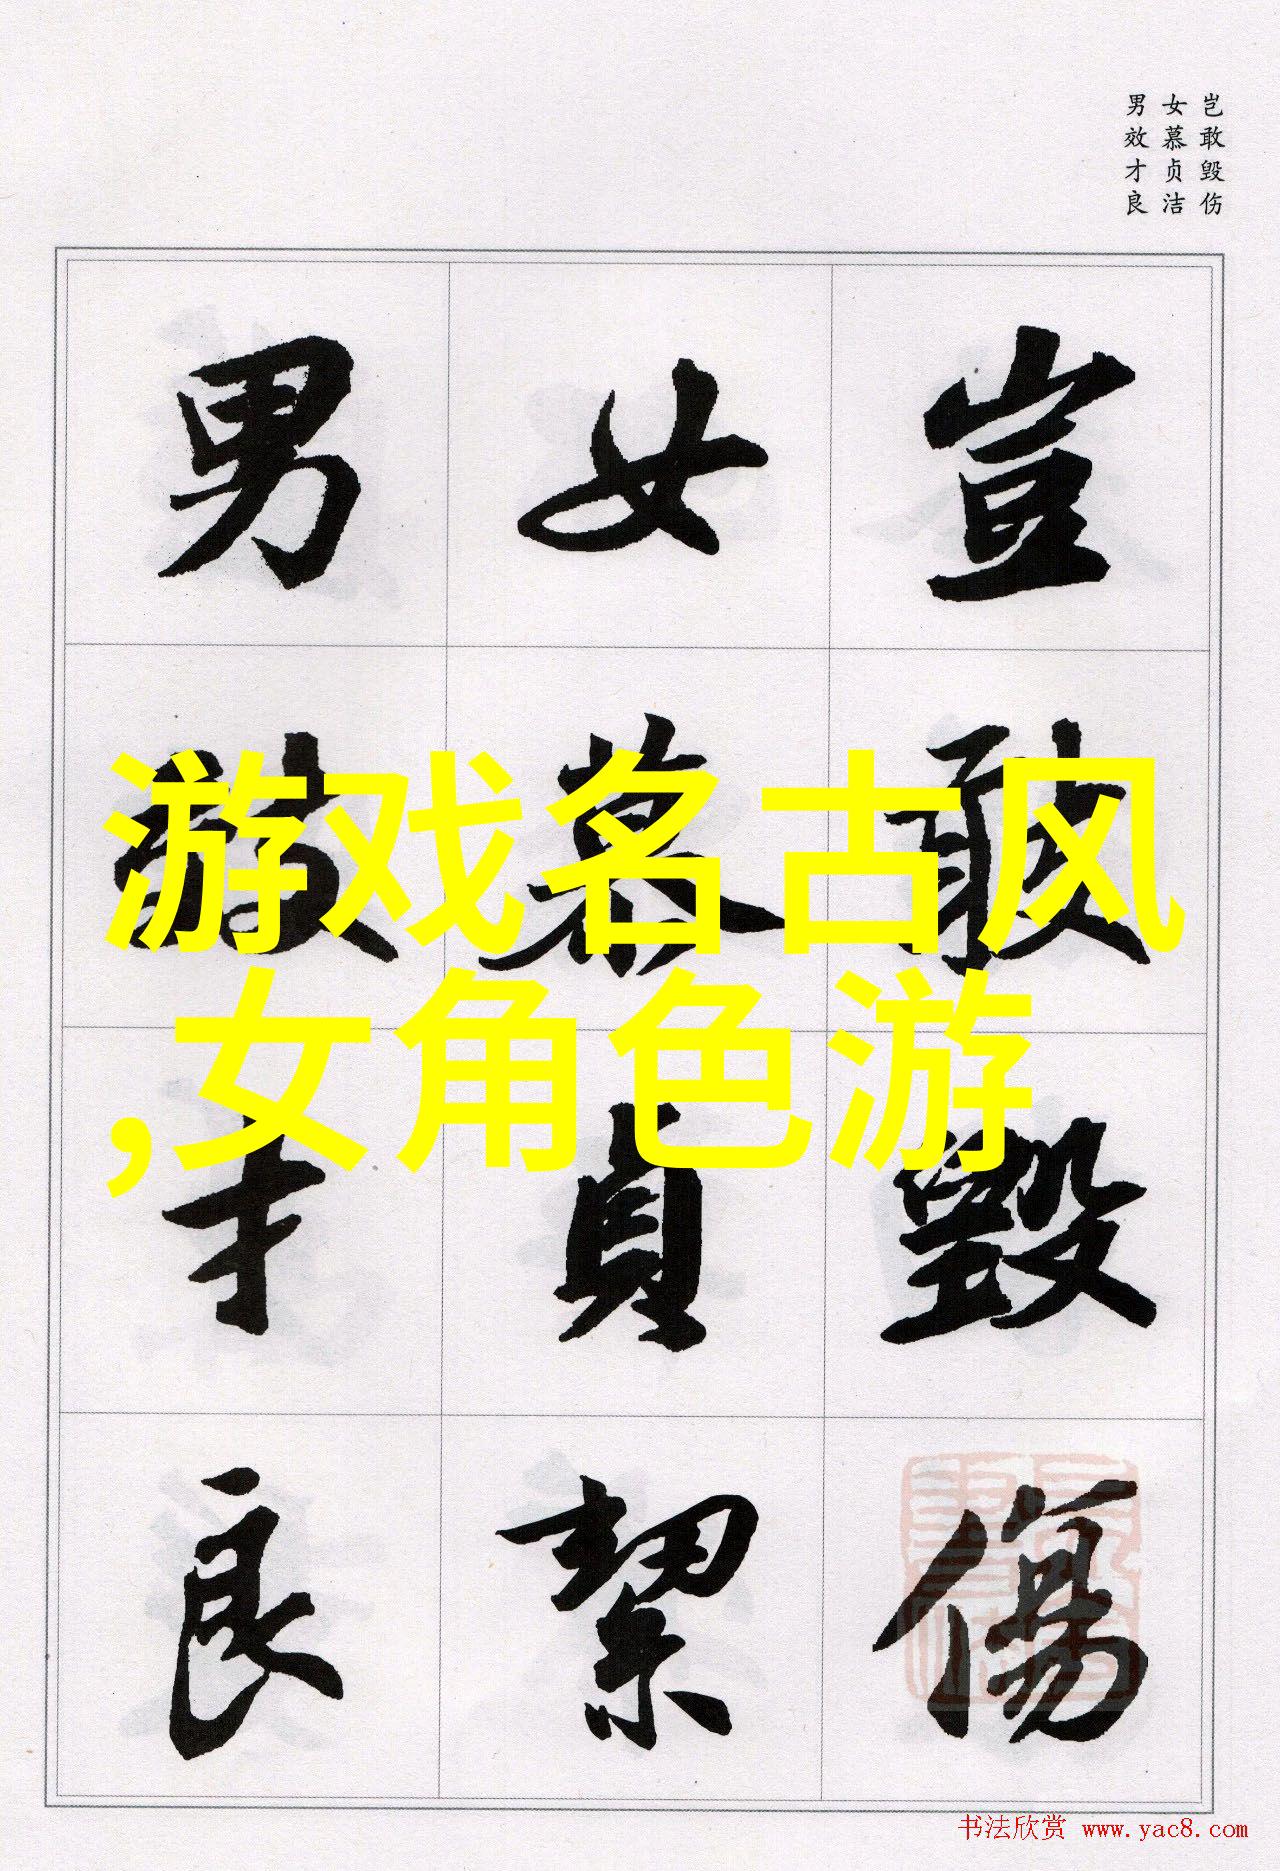 岂敢毁伤
女慕贞洁
男效才良
豈敢毀傷
女慕貞絜
男效才良
游戏名古风
,女角色游
书法欣赏 www.yac8.com